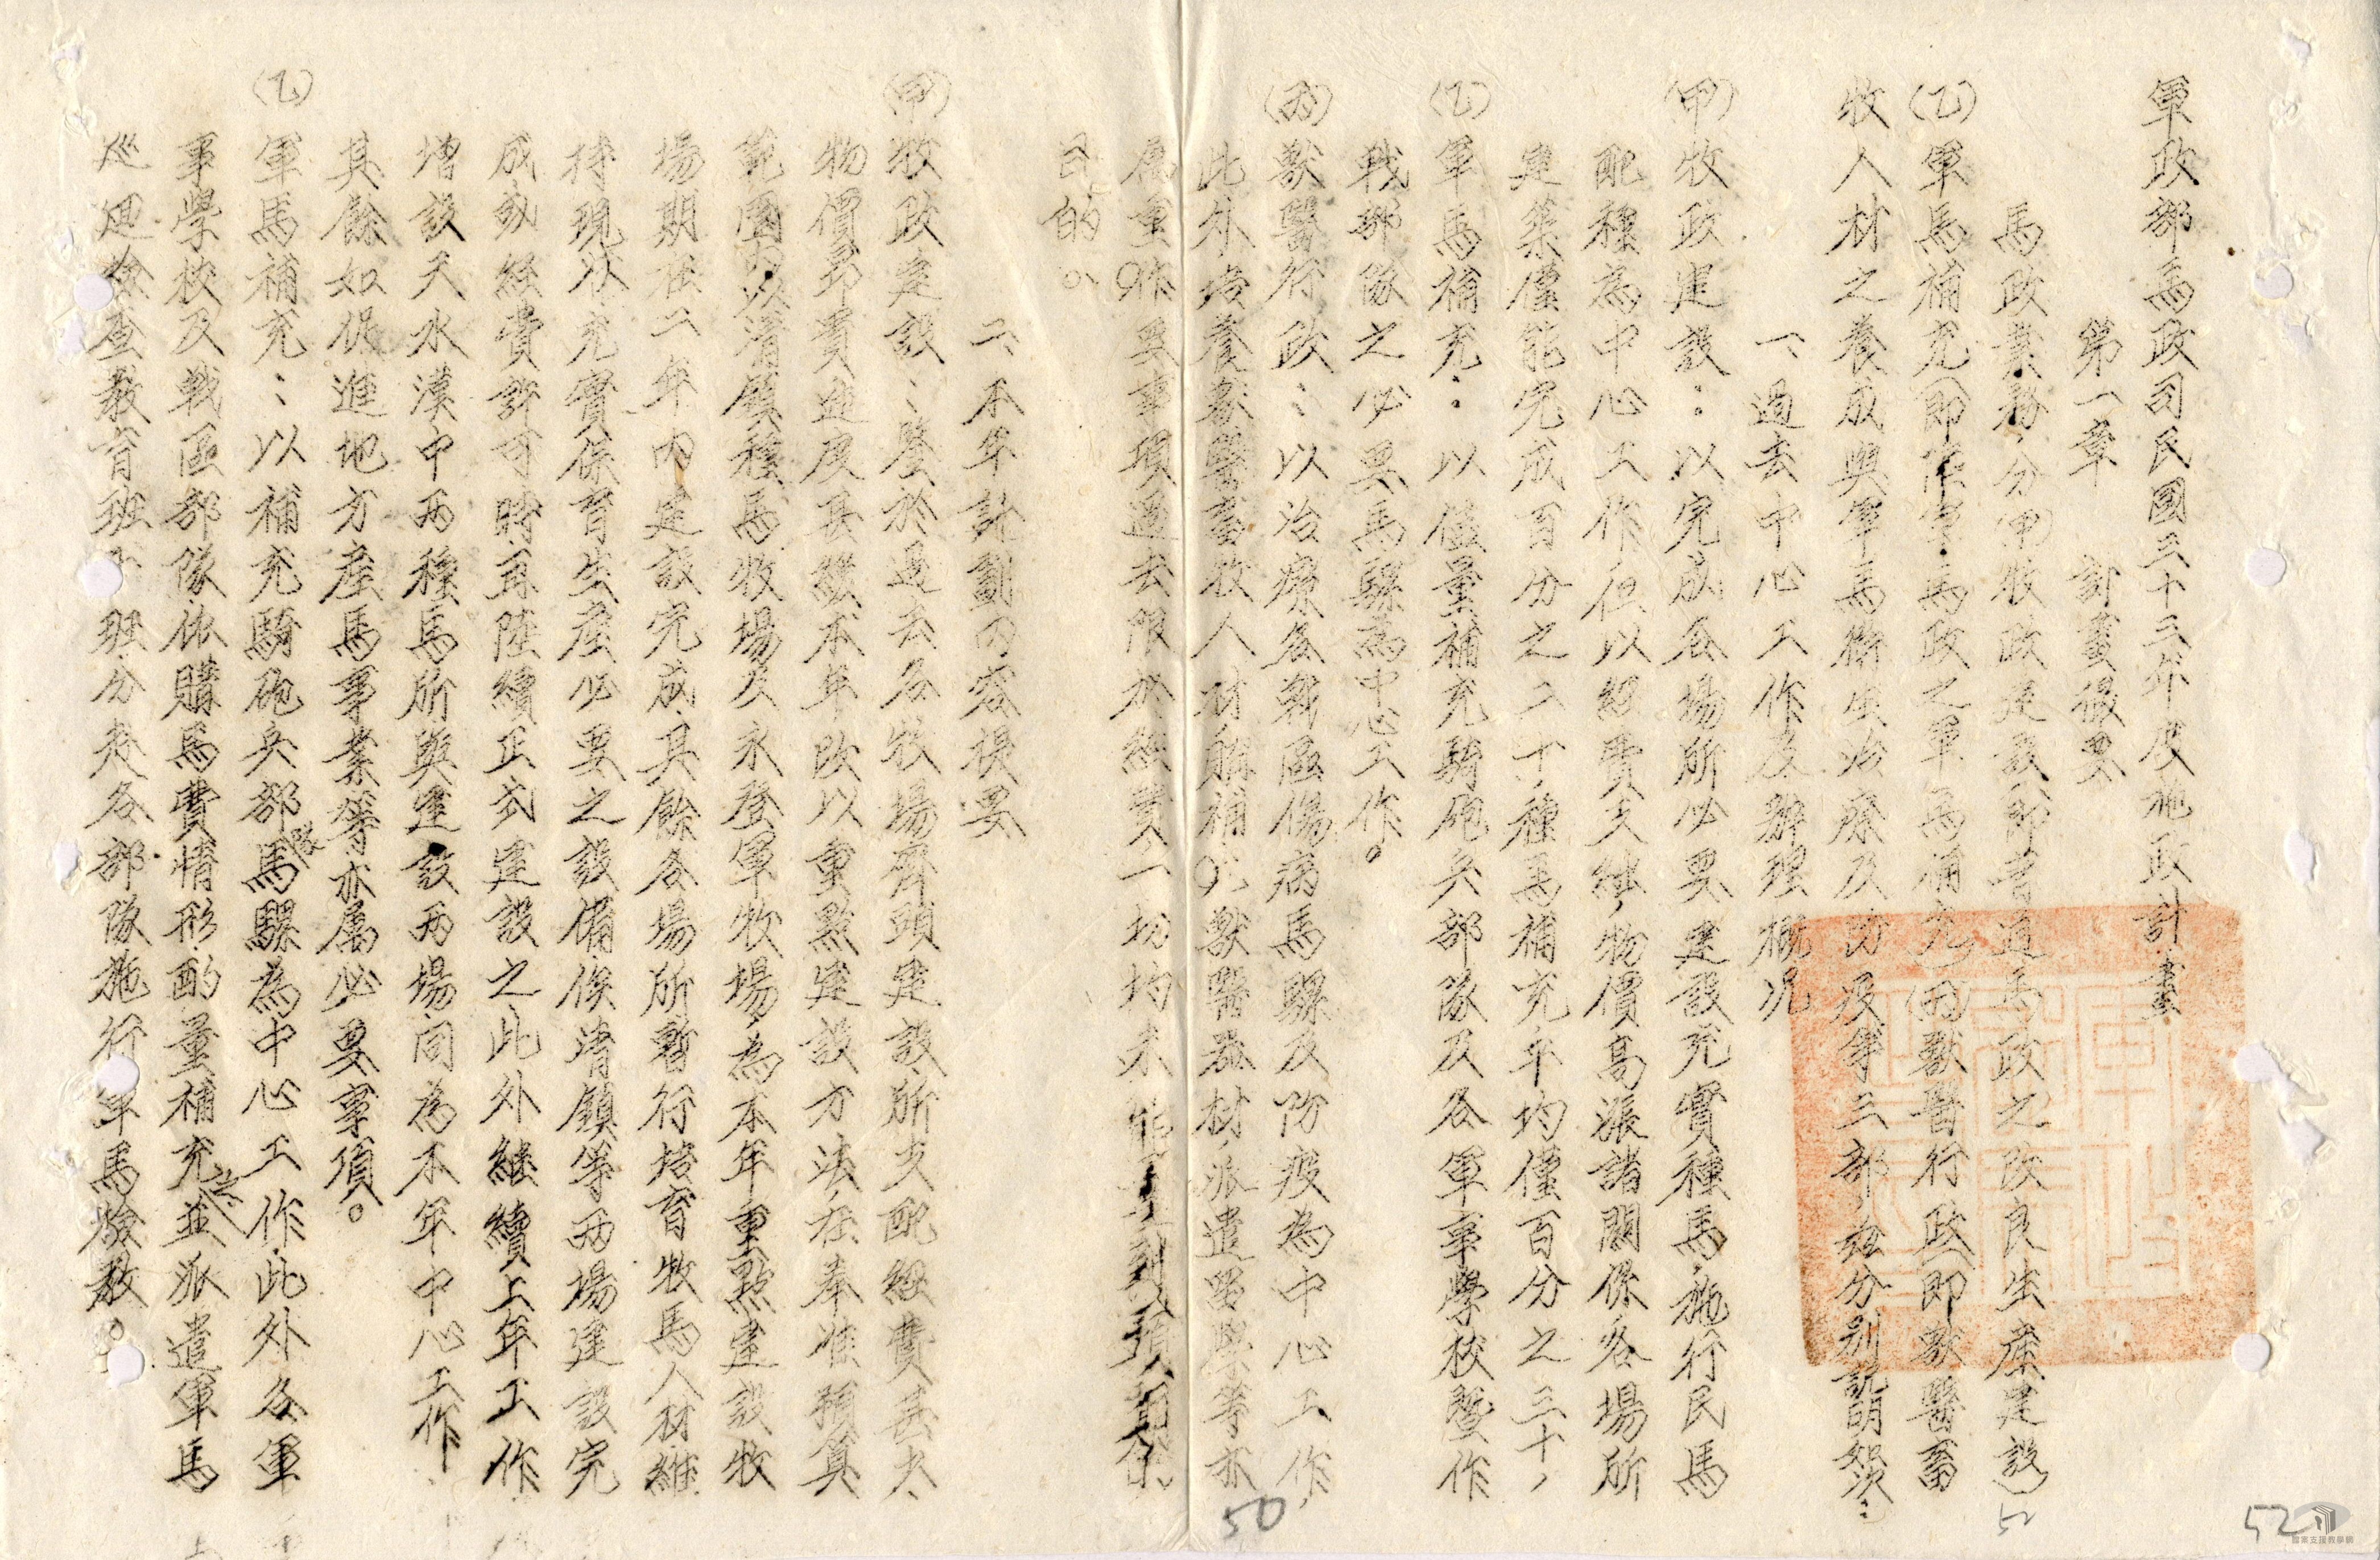 軍政部馬政司民國三十三年度施政計畫
第一章 計畫提要
馬政業務,分(甲)牧政建設(即普通馬政之改良生產建設)
(乙)軍馬補充(即 軍馬政之軍馬補充)(丙)獸醫行政(即獸醫畜
牧人材之養成與軍馬衛生治療及防疫等三部,茲分別說明如次:
一、過去中心工作及辦理概況
(甲)牧政建設:以完成各場所必要建設充實種馬,施行民馬
配種為中心工作但以經費支絀,物價高漲諸關係各場所
建築僅能完成百分之二十,種馬補充平均僅百分之三十,
(乙)軍馬補充:以儘量補充騎砲兵部隊及各軍事學校暨作
戰部隊之必要馬騾為中心工作。
(丙)獸醫行政:以治療各戰區傷病馬騾及防疫為中心工作,
此外培養獸醫畜牧人材 補充獸醫器材,派遣留學等亦
屬重要事項過去限於經費一切均未能 到預期
目的。
二、本年計劃內容提要
(甲)牧政建設:鑒於過去各牧場齊頭建設,所支配經費甚大
物價昂貴進度甚緩本年改以重點建設方法,在奉准預算
範圍內以清鎮種馬牧場及永登軍牧場,為本年重點建設牧
場期在二年內建設完成,其餘各場所暫行培育牧馬人材維
持現狀充實保育生產必要之設備,俟清鎮等兩場建設完
成或經費許可時再陸續正式建設之,此外繼續上年工作
增設天水漢中兩種馬所與建設兩場同為本年中心工作
其餘如促進地方產馬事業等亦屬必要事項。
(乙)軍馬補充:以補充騎砲兵部隊馬騾為中心工作,此外各軍
事學校及戰區部隊依購馬費情形酌量補充並派遣軍馬
巡迴檢查教育班 班分赴各部隊施行軍馬檢教。
50
52
52
國家文化記憶庫